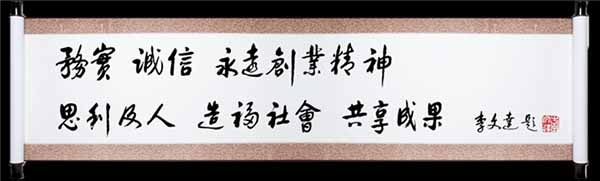 務實 誠信 永遠創業精神
思利及人 造福社會 共享成果 李文達題